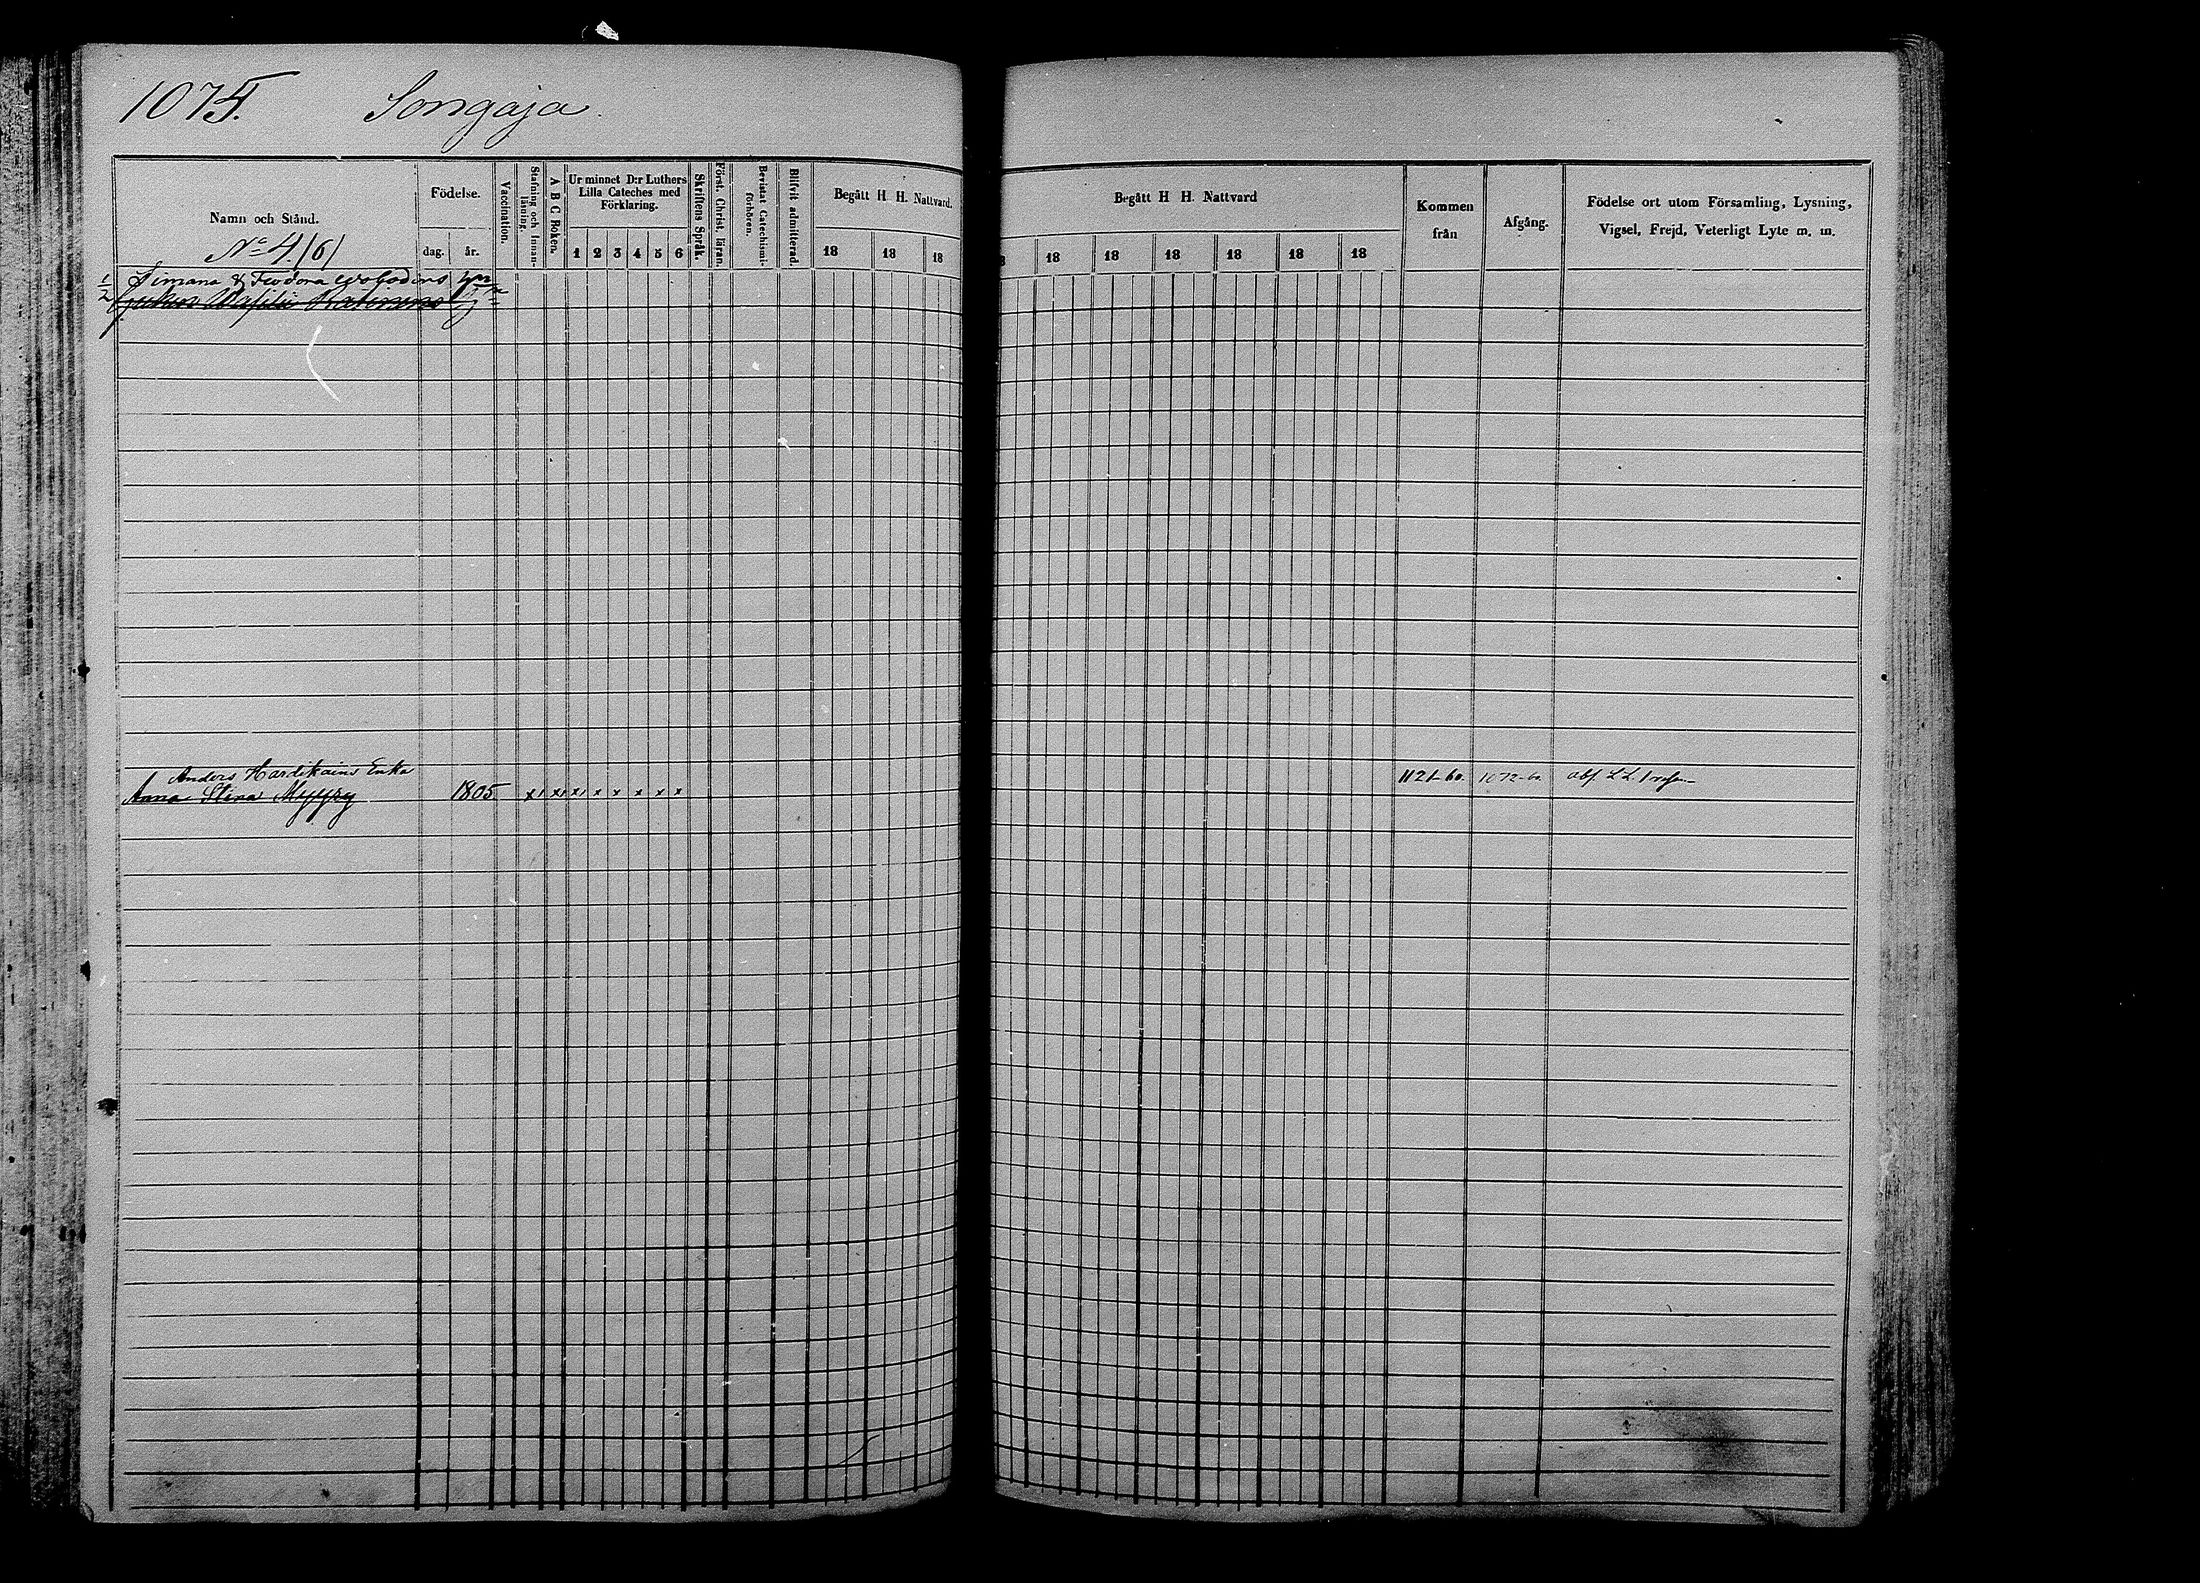 1075. Songaja.
Namn och Stånd.
Födelse.
dag. år.
Vaccination.
Stafning och Innan-läsning.
A B C Boken.
Ur minnet D:r Luthers Lilla Cateches med Förklaring.
1 2 3 4 5 6
Skriftens Språk.
Först. Christ. läran.
Bevistat Catechismi-förhören.
Blifvit admitterad.
Begått H H. Nattvard.
18 18 18
Begått H H. Nattvard
18 18 18 18 18 18
Kommen från
Afgång.
Födelse ort utom Församling, Lysning,
Vigsel, Frejd, Veterligt Lyte m. m.
No 4. /6/
1/2 Simana & Feodora
Anders Hardikains Enka
Anna Stina Myyry 1805 x x x x x x x x x
1121-60. 1072-60 abs. L. L.